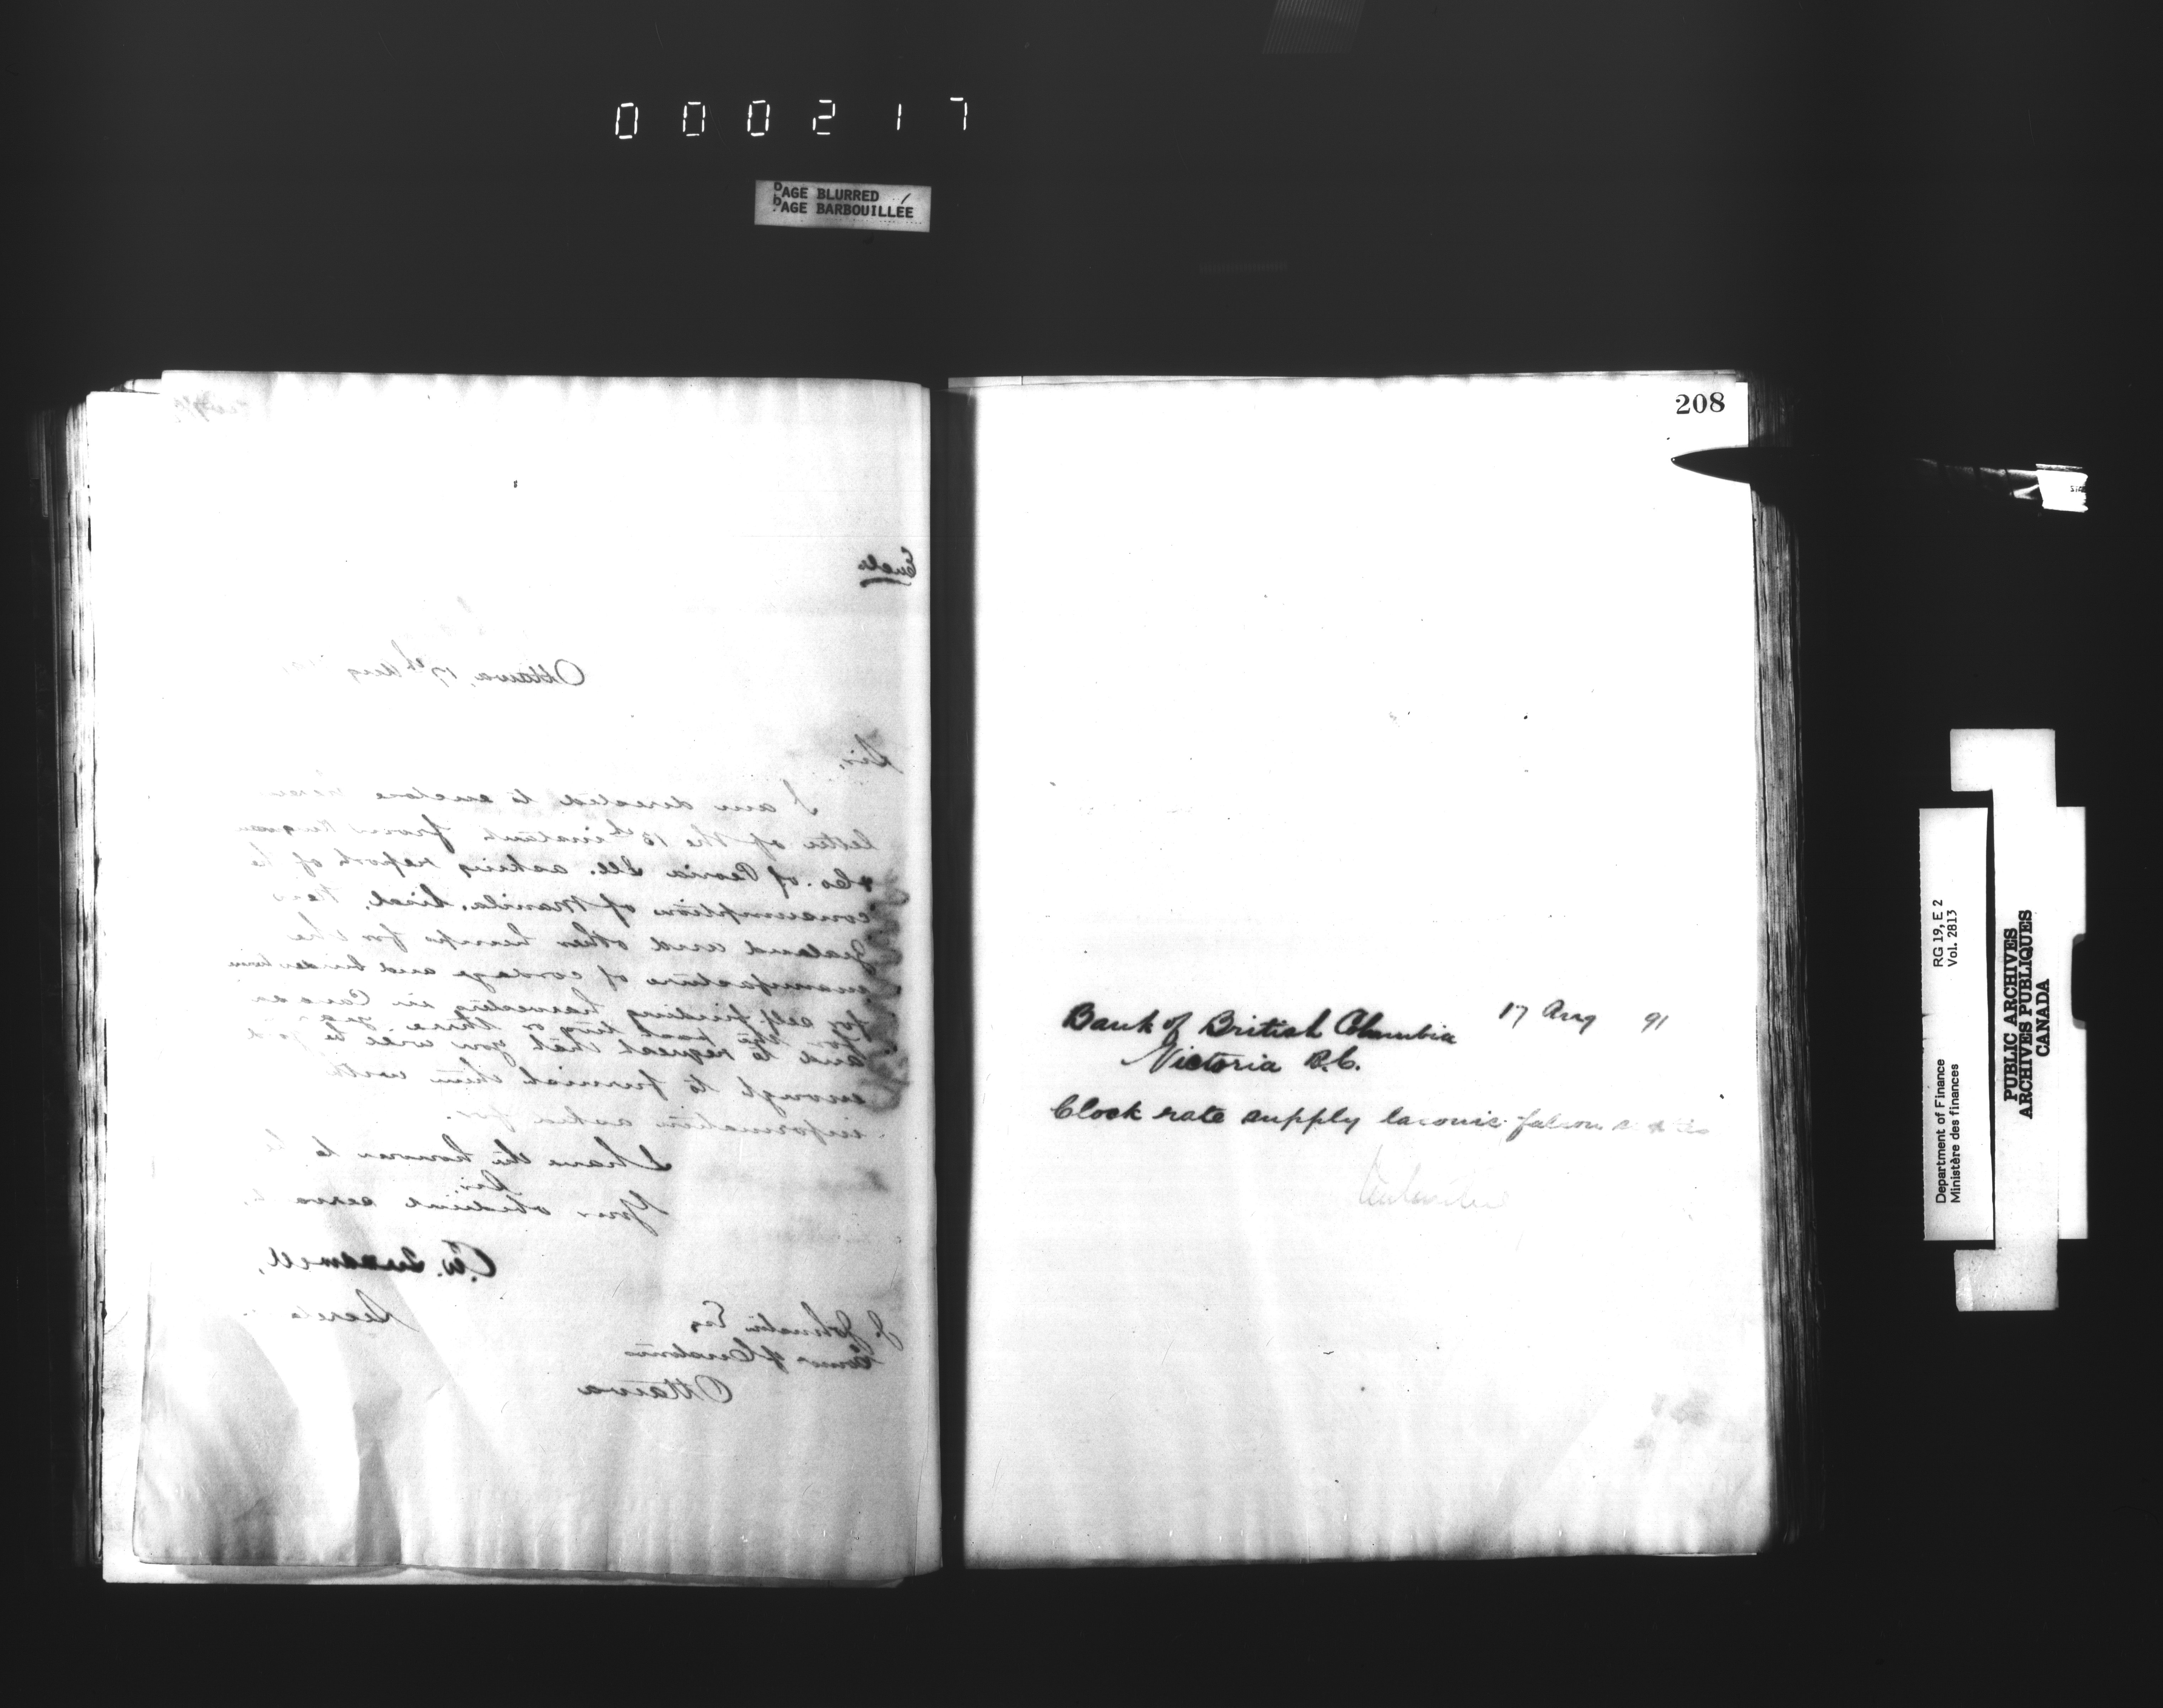 000217
PAGE BLURRED
PAGE BARBOUILLÉE
Encls
Ottawa, 17th Aug
Sir,
I am directed to enclose
letter of the 13th instant from
& Co. of Peoria Ill. asking report of the
consumption of Manila, Sisal, New
Zealand and other hemps for the
manufacture of cordage and binder twine
for self binding harvesters in Canada
for the past two or three years
and to request that you will be good
enough to furnish them with
information asked for.
I have the honour to be
Sir,
Your obedient servant,
J. Johnson Esq
Comr of Customs
Ottawa
208
Bank of British Columbia 17 Aug 91
Victoria B.C.
Clock rate supply laconic
RG 19, E 2
Vol. 2813
Department of Finance
Ministère des finances
PUBLIC ARCHIVES
ARCHIVES PUBLIQUES
CANADA